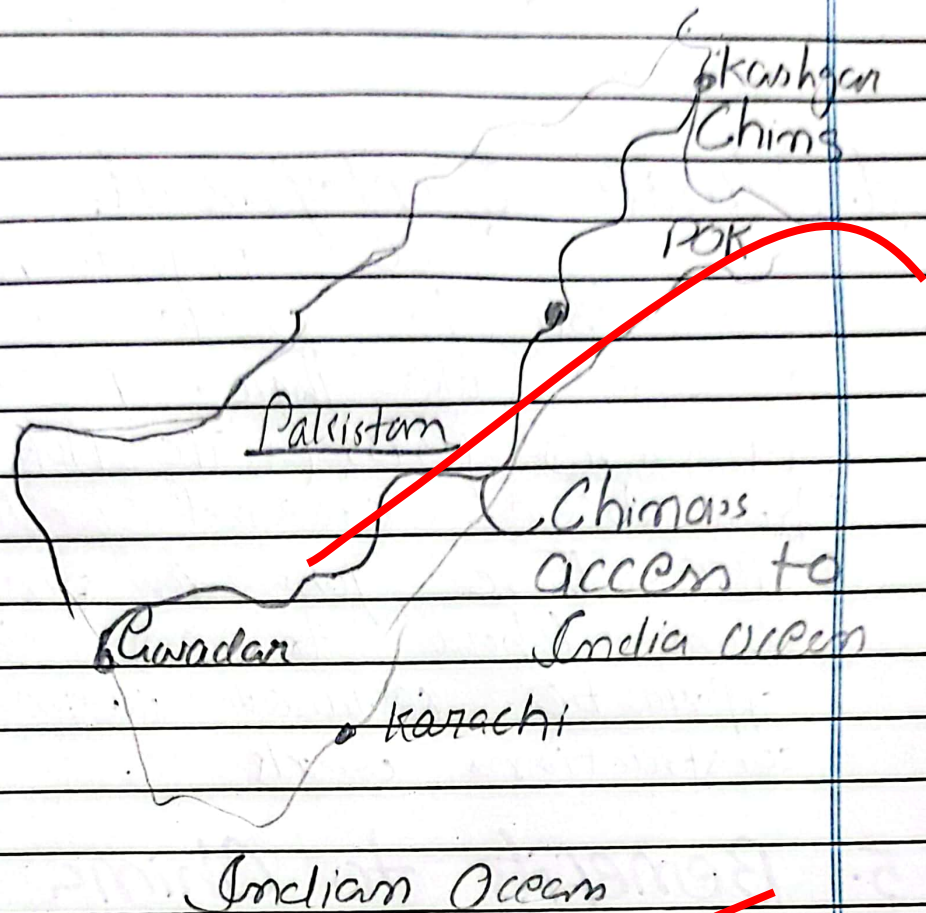 Kashgar
China
POK
Pakistan
China's
access to
India Ocean
Gwadar
Karachi
Indian Ocean